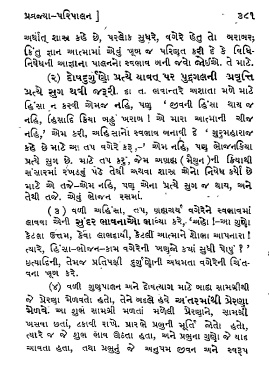 પ્રવ્રજ્યા-પરિપાલન ] ૩૮૧
અર્થાત્ શાસ્ત્ર કહે છે, પરલોક સુધરે, વગેરે હેતુ તો બરાબર;
કિંતુ જ્ઞાન આત્મામાં એવું ખૂબ જ પરિણત કરી દે કે વિધિ-
નિષેધની આજ્ઞાના પાલનનો સ્વભાવ બની જવો જોઈએ. તે માટે
(૨) દોષદુર્ગુણો પ્રત્યે યાવત્ પર પુદ્ગલની પ્રવૃત્તિ
પ્રત્યે સુગ થવી જરૂરી. દા. ત. ભવાંતરે અશાતા મળે માટે
હિંસા ન કરવી એમજ નહિ, પણ ' જીવની હિંસા થાય જ
નહિ, હિંસાદિ ક્રિયા બહુ ખરાબ ! એ મારા આત્માની ચીજ
નહિ,' એમ કરી, અહિંસાનો સ્વભાવ બનાવી દે ' ગુરૂમહારાજ
કહે છે માટે આ તપ વગેરે કરૂં,–' એમ નહિ, પણ ભોજનક્રિયા
પ્રત્યે સુગ છે. માટે તપ કરૂં, જેમ અબ્રહ્મ (મૈથુન)ની ક્રિયાથી
સંસારમાં રખડવું પડે તેથી અથવા શાસ્ત્ર એનો નિષેધ કર્યો છે
માટે એ તજે–એમ નહિ, પણ એના પ્રત્યે સુગ જ થાય, અને
તેથી તજે. એવું ભોજન રસમાં.
(૩) વળી અહિંસા, તપ, બ્રહ્મચર્ય વગેરેને સ્વભાવમાં
લાવવા એની સુંદર ભાવનાઓ ભાવ્યા કરે, 'અહો !–આ ગુણો
કેટલા ઉત્તમ, કેવા લાભદાયી, કેટલી આત્માને શોભા આપનારા !
ત્યારે, હિંસા-ભોજન-કામ વગેરેની પશુતા કયાં સુધી પોષું ?'
ઇત્યાદિની, તેમજ પ્રતિપક્ષી દુર્ગુણોની અધમતા વગેરેની ચિંત-
વના પૂબ કરે.
(૪) વળી ગુણપાલન અને દોષત્યાગ માટે બાહ્ય સામગ્રીથી
જે પ્રેરણા મેળવતો હતો, તેને બદલે હવે અંતરમાંથી પ્રેરણા
મેળવે. આ શુભ સામગ્રી મળતાં મળેલી પ્રેરણાને, સામગ્રી
ખસવા છતાં, ટકાવી રાખે. પ્રારંભે પ્રભુની મૂર્તિ જોતો હતો,
ત્યારે જ જે શુભ ભાવ ઊઠતા હતા, અને પ્રભુના ગુણો જે યાદ
આવતા હતા, તથા પ્રભુનું જે અનુપમ જીવન અને સ્વરૂપ